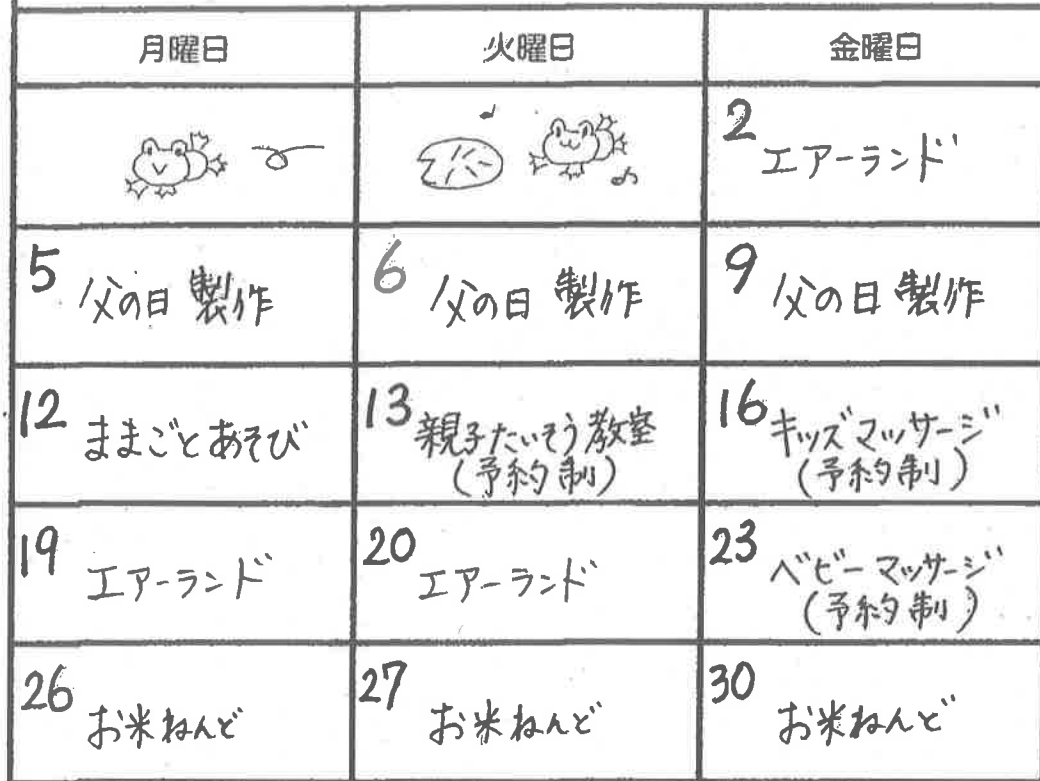 月曜日 火曜日 金曜日
2 エアーランド
5 父の日 製作
6 父の日 製作
9 父の日 製作
12 ままごとあそび
13 親子たいそう教室
(予約制)
16 キッズマッサージ
(予約制)
19 エアーランド
20 エアーランド
23 ベビーマッサージ
(予約制)
26 お米ねんど
27 お米ねんど
30 お米ねんど